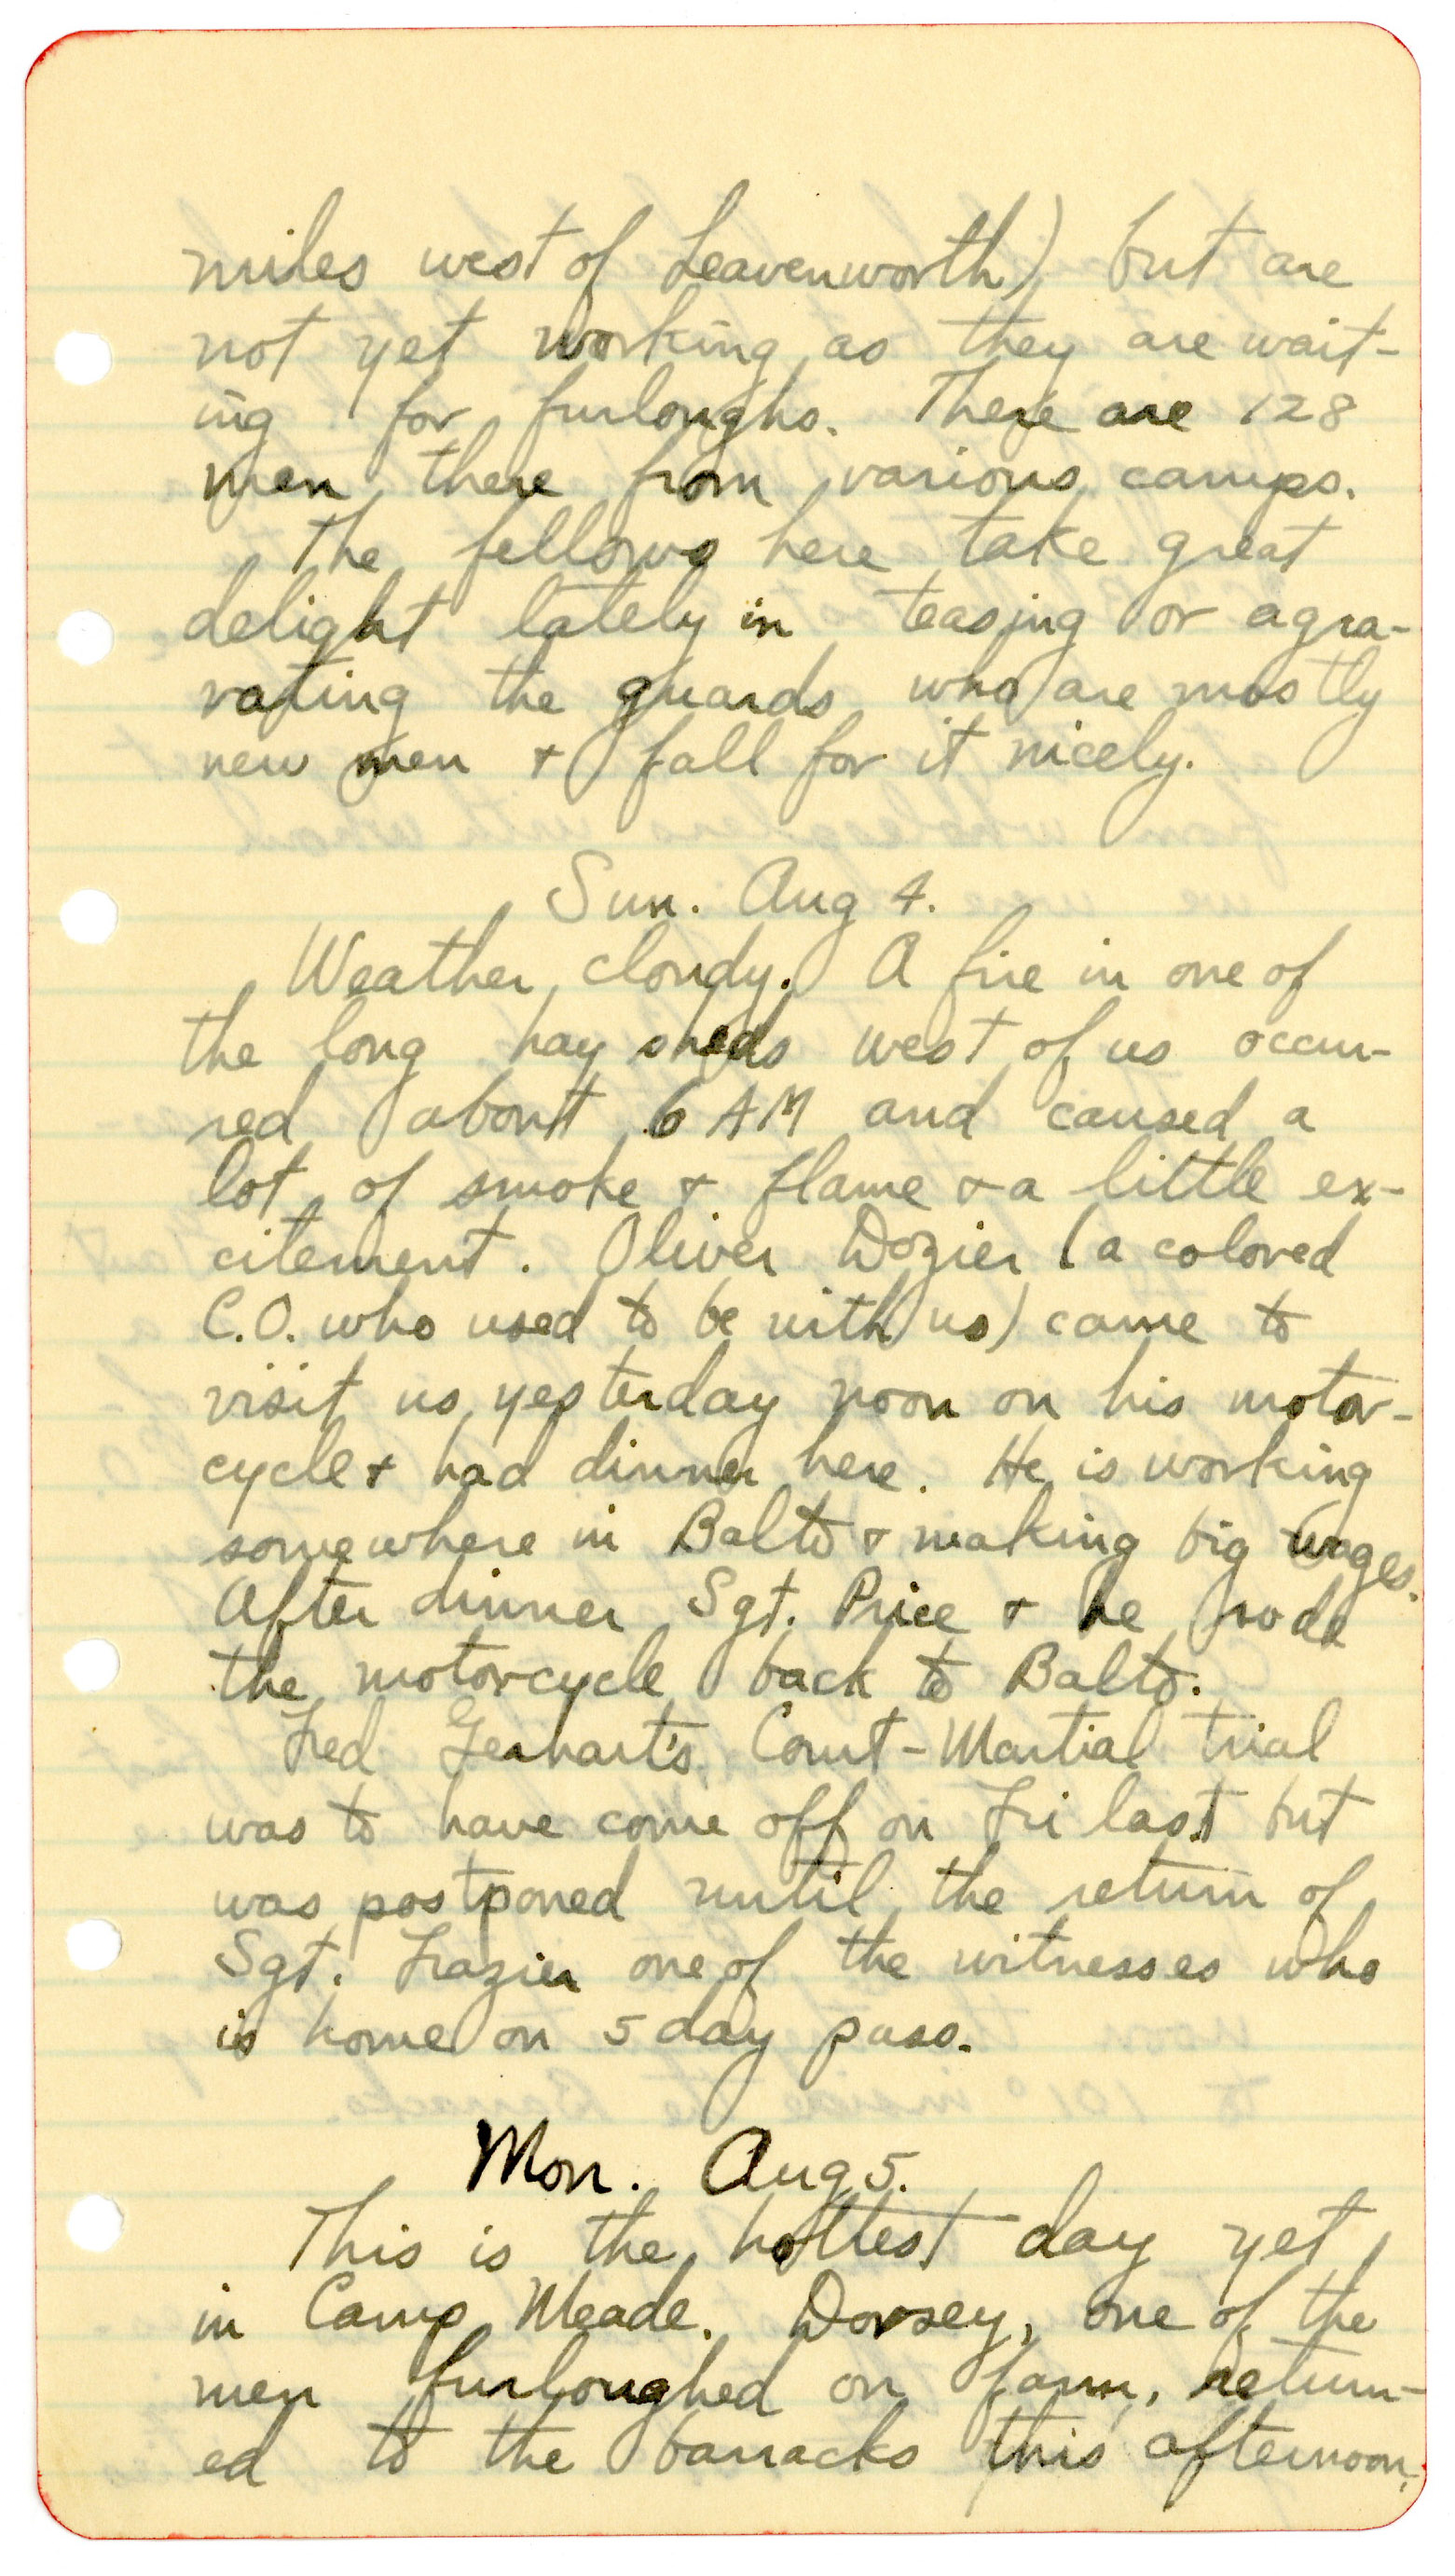 miles west of Leavenworth) but are
not yet working as they are wait-
ing for furloughs. There are 128
men there from various camps.
The fellows here take great
delight lately in teasing or agra-
vating the guards who are mostly
new men + fall for it nicely.
Sun. Aug 4.
Weather cloudy. A fire in one of
the long hay sheds west of us occur-
red about 6 AM and caused a
lot of smoke + flame + a little ex-
citement. Oliver Dozier (a colored
C.O. who used to be with us) came to
visit us yesterday noon on his motor-
cycle + had dinner here. He is working
somewhere in Balto + making big wages.
After dinner Sgt. Price + he rode
the motorcycle back to Balto.
Fred Gerhart's Court-Martial trial
was to have come off on Fri last but
was postponed until the return of
Sgt. Frazier one of the witnesses who
is home on 5 day pass.
Mon. Aug 5.
This is the hottest day yet
in Camp Meade. Dorsey, one of the
men furloughed on farm, return-
ed to the barracks this afternoon.